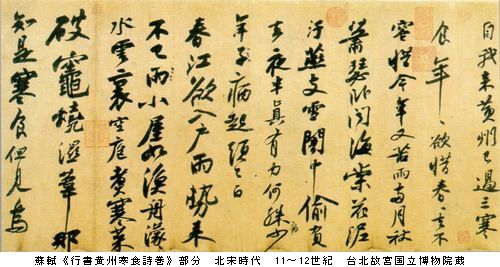 自我來黃州已過三寒
食年〻欲惜春〻去不
容惜今年又苦雨兩月秋
蕭瑟臥聞海棠花泥
汙燕支雪闇中偷負
去夜半真有力何殊病少
年子病起頭已白
春江欲入戶雨勢來
不已雨小屋如漁舟濛〻
水雲裏空庖煮寒菜
破竈燒濕葦那
知是寒食但見烏
蘇軾《行書黄州寒食詩巻》部分　北宋時代　11～12世紀　台北故宮国立博物院蔵